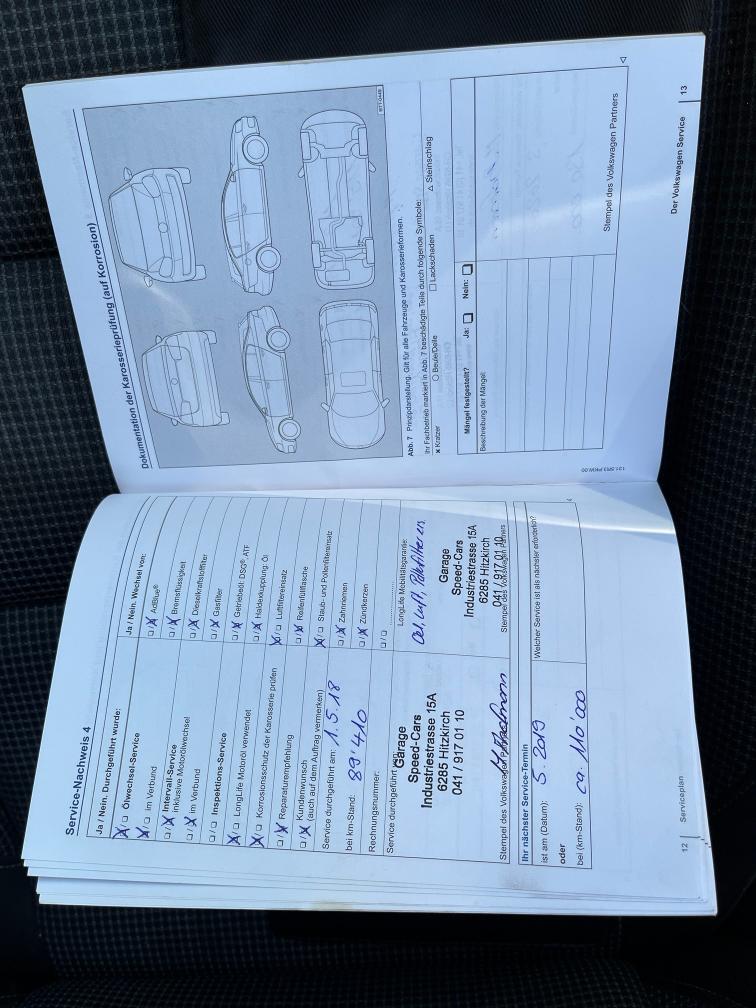 Service-Nachweis 4
Ja / Nein. Durchgeführt wurde:
Ölwechsel-Service
im Verbund
Intervall-Service
inklusive Motorölwechsel
im Verbund
Inspektions-Service
LongLife Motoröl verwendet
Korrosionsschutz der Karosserie prüfen
Reparaturempfehlung
Kundenwunsch
(auch auf dem Auftrag vermerken)
Service durchgeführt am: 1.5.18
bei km-Stand: 89'410
Rechnungsnummer:
Service durchgeführt von:
Garage
Speed-Cars
Industriestrasse 15A
6285 Hitzkirch
041 / 917 01 10
Stempel des Volkswagen
Ja / Nein. Wechsel von:
AdBlue®
Bremsflüssigkeit
Dieselkraftstofffilter
Gasfilter
Getriebeöl: DSG®-ATF
Haldexkupplung: Öl
Luftfiltereinsatz
Reifenfüllflasche
Staub- und Pollenfiltereinsatz
Zahnriemen
Zündkerzen
LongLife Mobilitätsgarantie:
Oel, Luft, Pollenfilter ers.
Garage
Speed-Cars
Industriestrasse 15A
6285 Hitzkirch
041 / 917 01 10
Stempel des Volkswagen Partners
Ihr nächster Service-Termin
ist am (Datum): 5. 2019
oder
bei (km-Stand): ca. 110'000
Welcher Service ist als nächster erforderlich?
12 Serviceplan
Dokumentation der Karosserieprüfung (auf Korrosion)
BTT-0448
Abb. 7 Prinzipdarstellung. Gilt für alle Fahrzeuge und Karosserieformen.
Ihr Fachbetrieb markiert in Abb. 7 beschädigte Teile durch folgende Symbole:
x Kratzer ○ Beule/Delle □ Lackschäden △ Steinschlag
Mängel festgestellt? Ja: ❏ Nein: ❏
Beschreibung der Mängel:
Stempel des Volkswagen Partners
131.5R3.PKW.00
Der Volkswagen Service 13